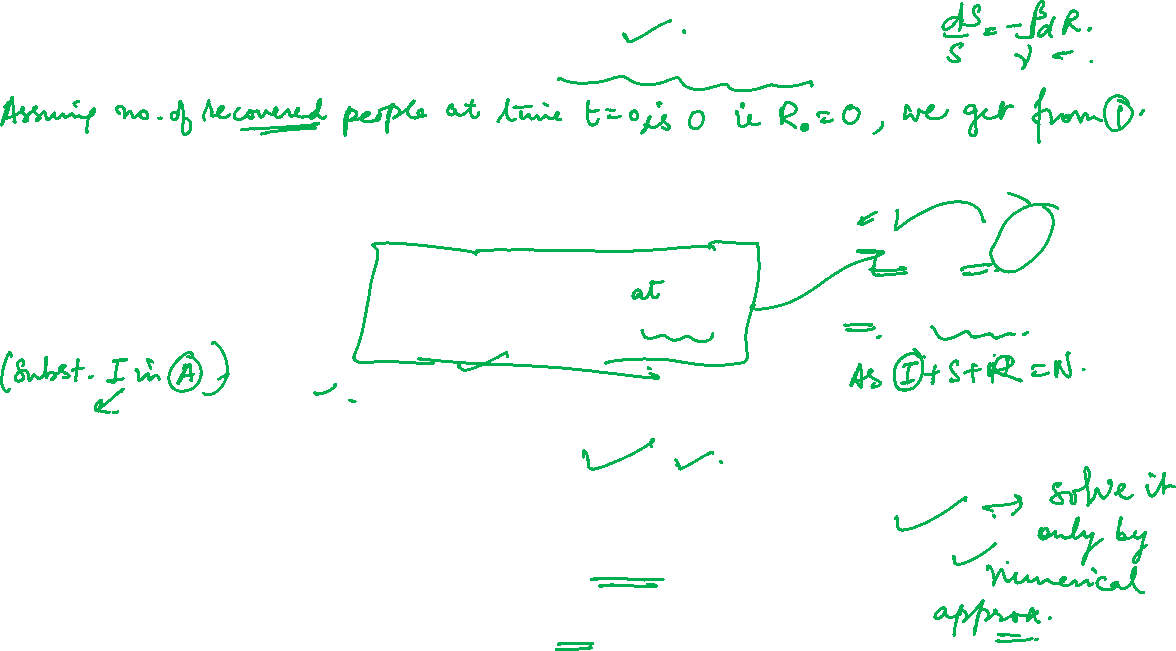 dS/S = -∫β/γ dR.
Assuming no. of recovered people at time t=0, is 0 ie R₀=0, we get from ①.
at
(Subst. I in Ⓐ)
As Ⓘ+S+R=N.
→ solve it
only by
numerical
approx.